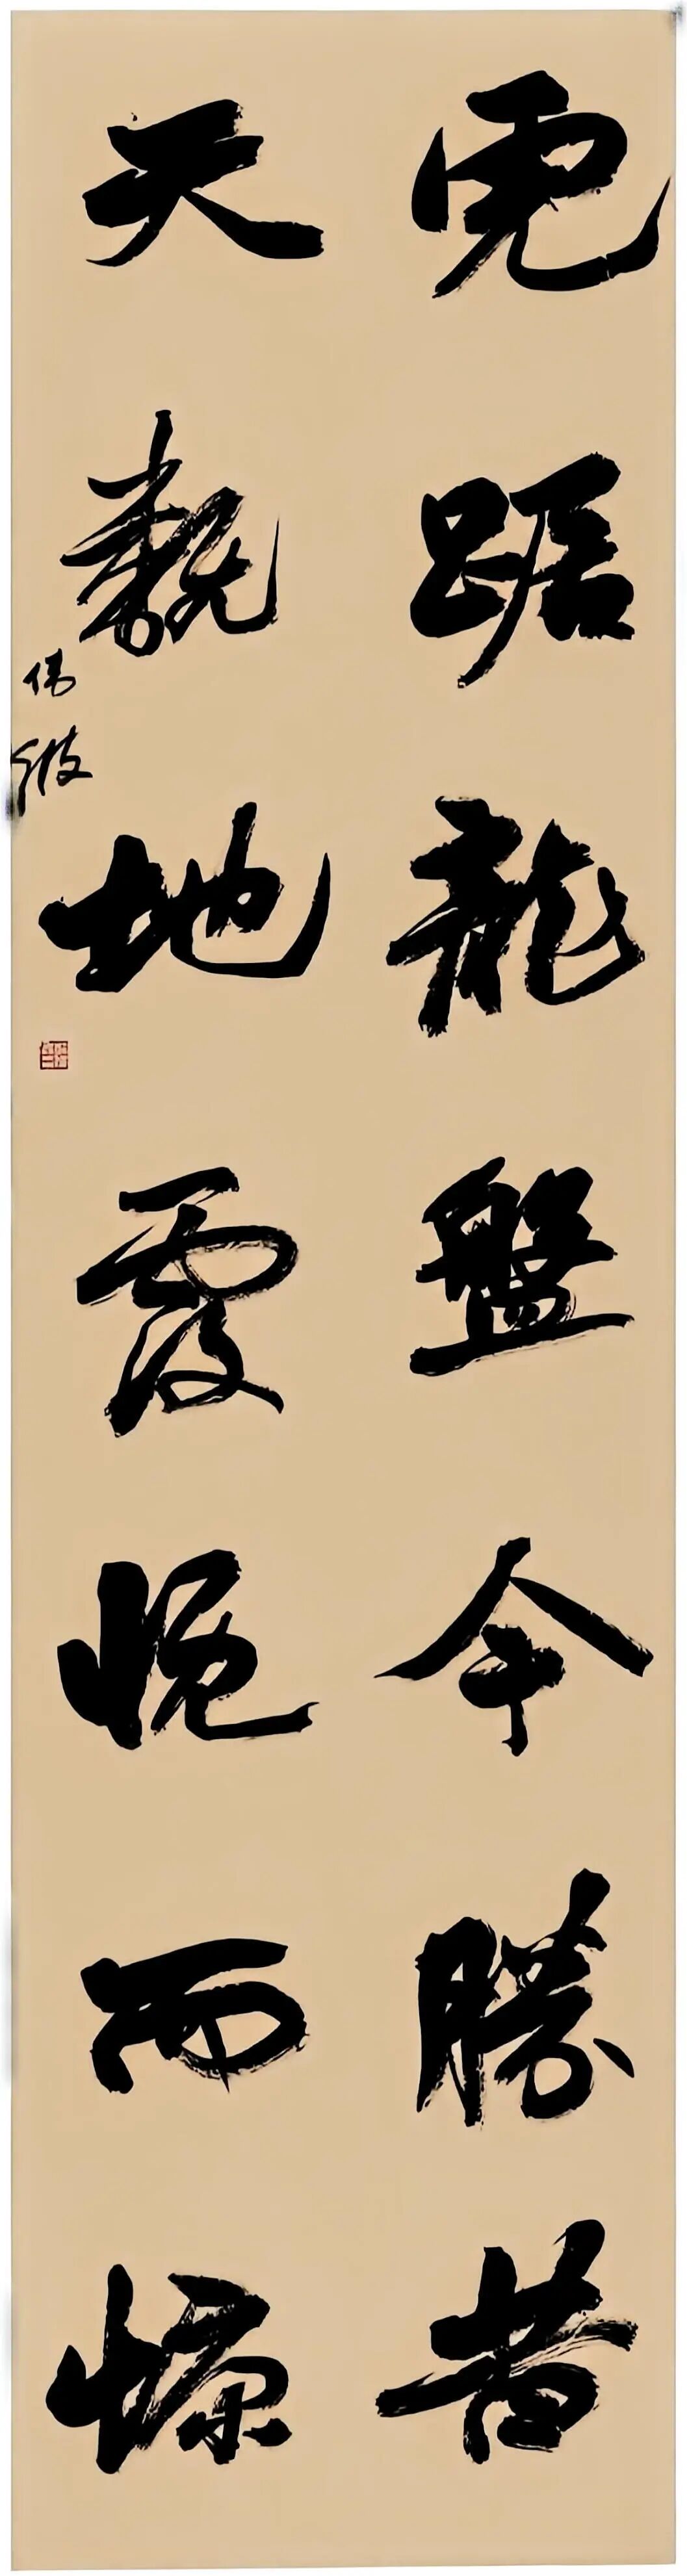 虎踞龍盤今勝昔
天翻地覆慨而慷
伟波